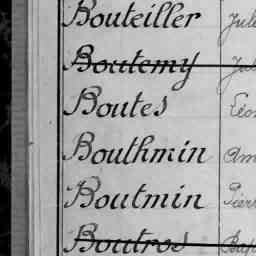 Bouteiller Jule
Boutemy Jul
Boutes Léon
Bouthmin Am
Boutmin Pierr
Boutros Bap